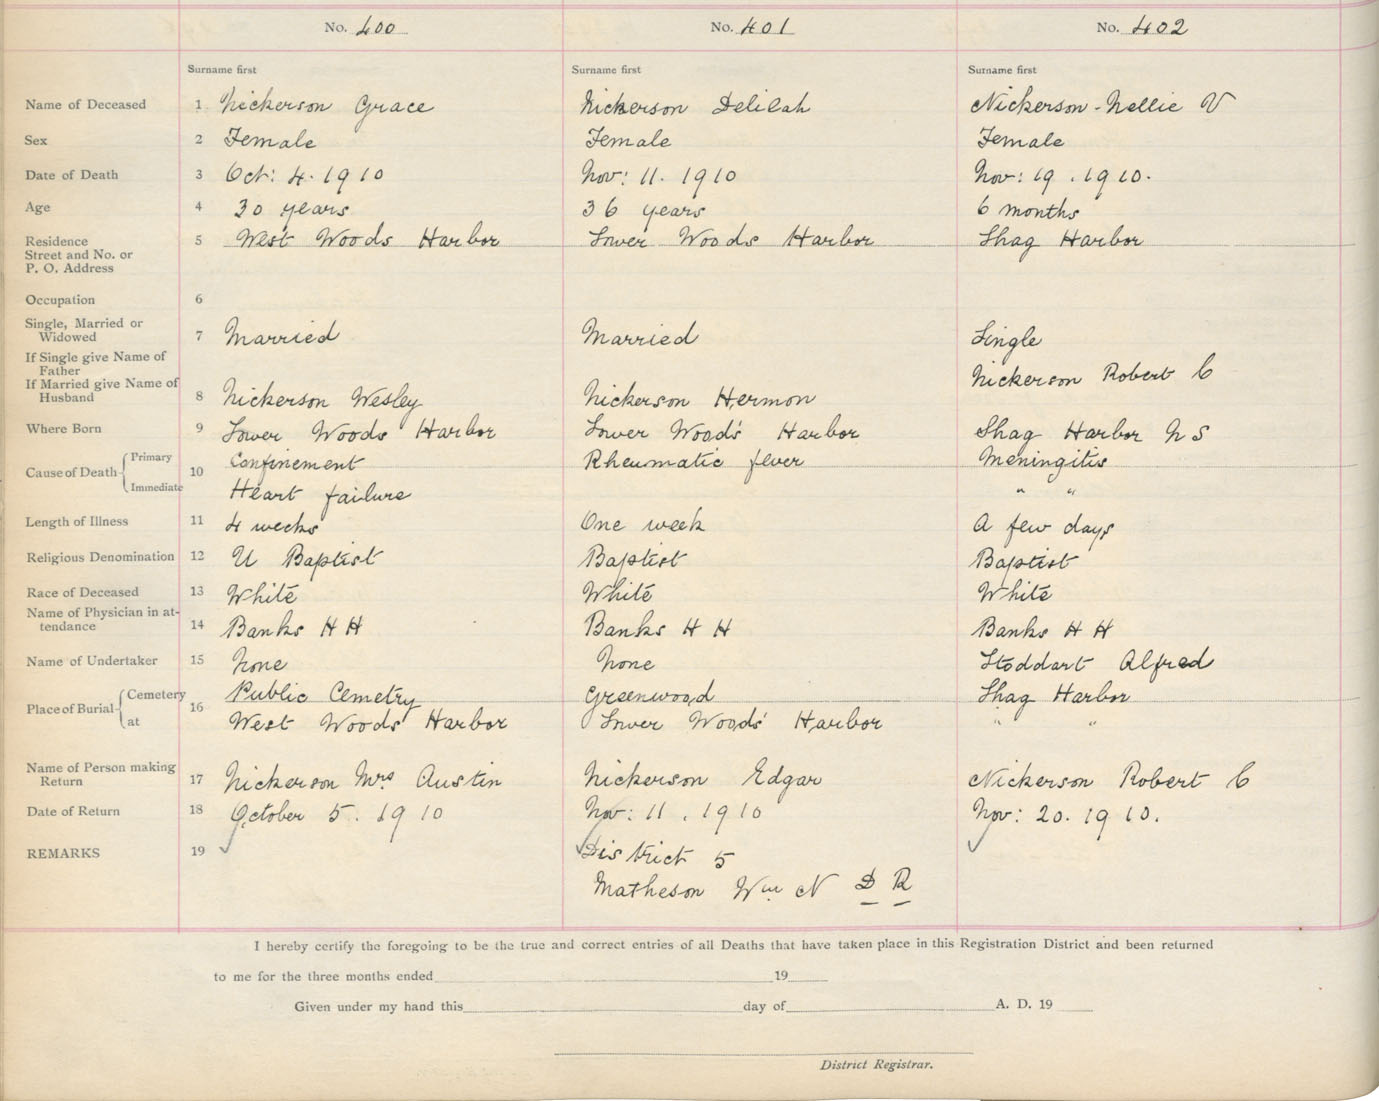 No. 400 No. 401 No. 402
Surname first Surname first Surname first
Name of Deceased 1 Nickerson Grace Nickerson Delilah Nickerson - Nellie V
Sex 2 Female Female Female
Date of Death 3 Oct: 4. 1910 Nov: 11. 1910 Nov: 19. 1910.
Age 4 30 years 36 years 6 months
Residence 5 West Woods Harbor Lower Woods Harbor Shag Harbor
Street and No. or
P. O. Address
Occupation 6
Single, Married or
Widowed 7 Married Married Single
If Single give Name of
Father Nickerson Robert C
If Married give Name of
Husband 8 Nickerson Wesley Nickerson Hermon
Where Born 9 Lower Woods Harbor Lower Woods' Harbor Shag Harbor N S
Primary Confinement Rheumatic fever Meningitis
Cause of Death 10
Immediate Heart failure " "
Length of Illness 11 4 weeks One week A few days
Religious Denomination 12 U Baptist Baptist Baptist
Race of Deceased 13 White White White
Name of Physician in at-
tendance 14 Banks H H Banks H H Banks H H
Name of Undertaker 15 None None Stoddart Alfred
Cemetery Public Cemetry Greenwood Shag Harbor
Place of Burial 16
at West Woods' Harbor Lower Woods' Harbor " "
Name of Person making
Return 17 Nickerson Mrs Austin Nickerson Edgar Nickerson Robert C
Date of Return 18 October 5. 1910 Nov: 11. 1910 Nov: 20. 1910.
REMARKS 19 District 5
Matheson Wm N D R
I hereby certify the foregoing to be the true and correct entries of all Deaths that have taken place in this Registration District and been returned
to me for the three months ended 19
Given under my hand this day of A. D. 19
District Registrar.